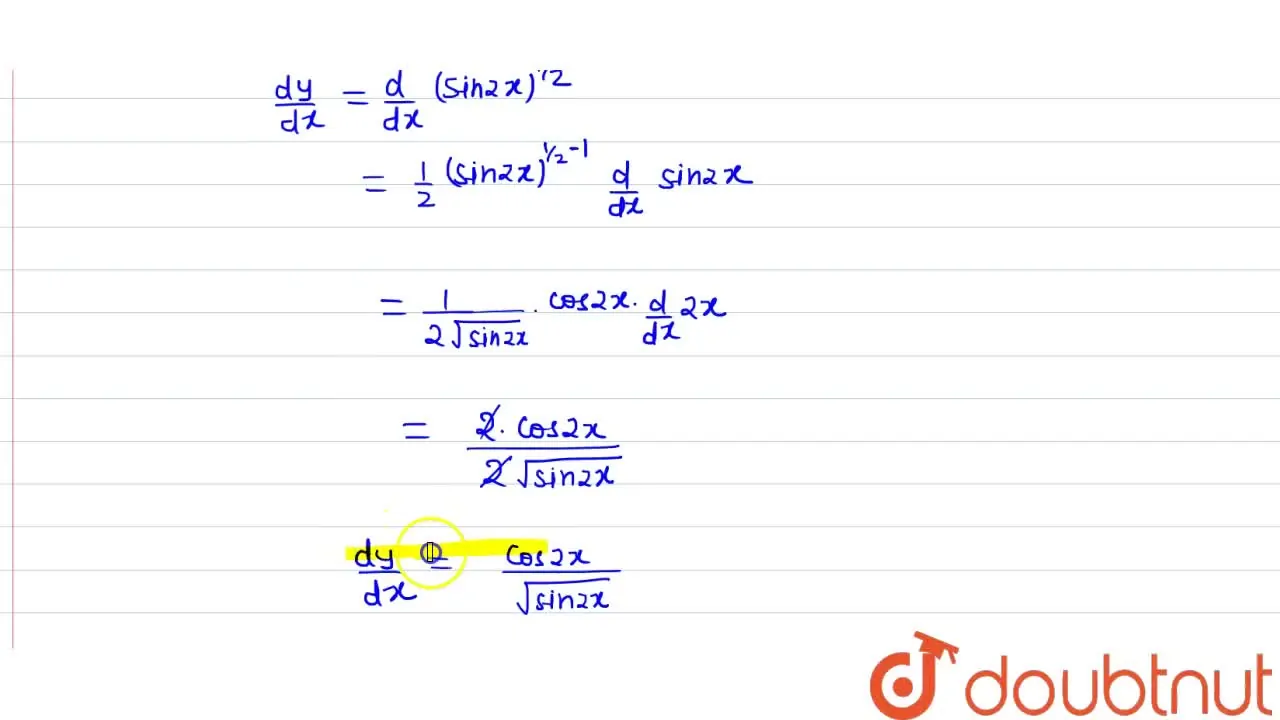 dy/dx = d/dx (sin2x)^1/2
= 1/2 (sin2x)^1/2-1 d/dx sin2x
= 1/2√sin2x · cos2x · d/dx 2x
= 2·cos2x/2√sin2x
dy/dx = cos2x/√sin2x
doubtnut